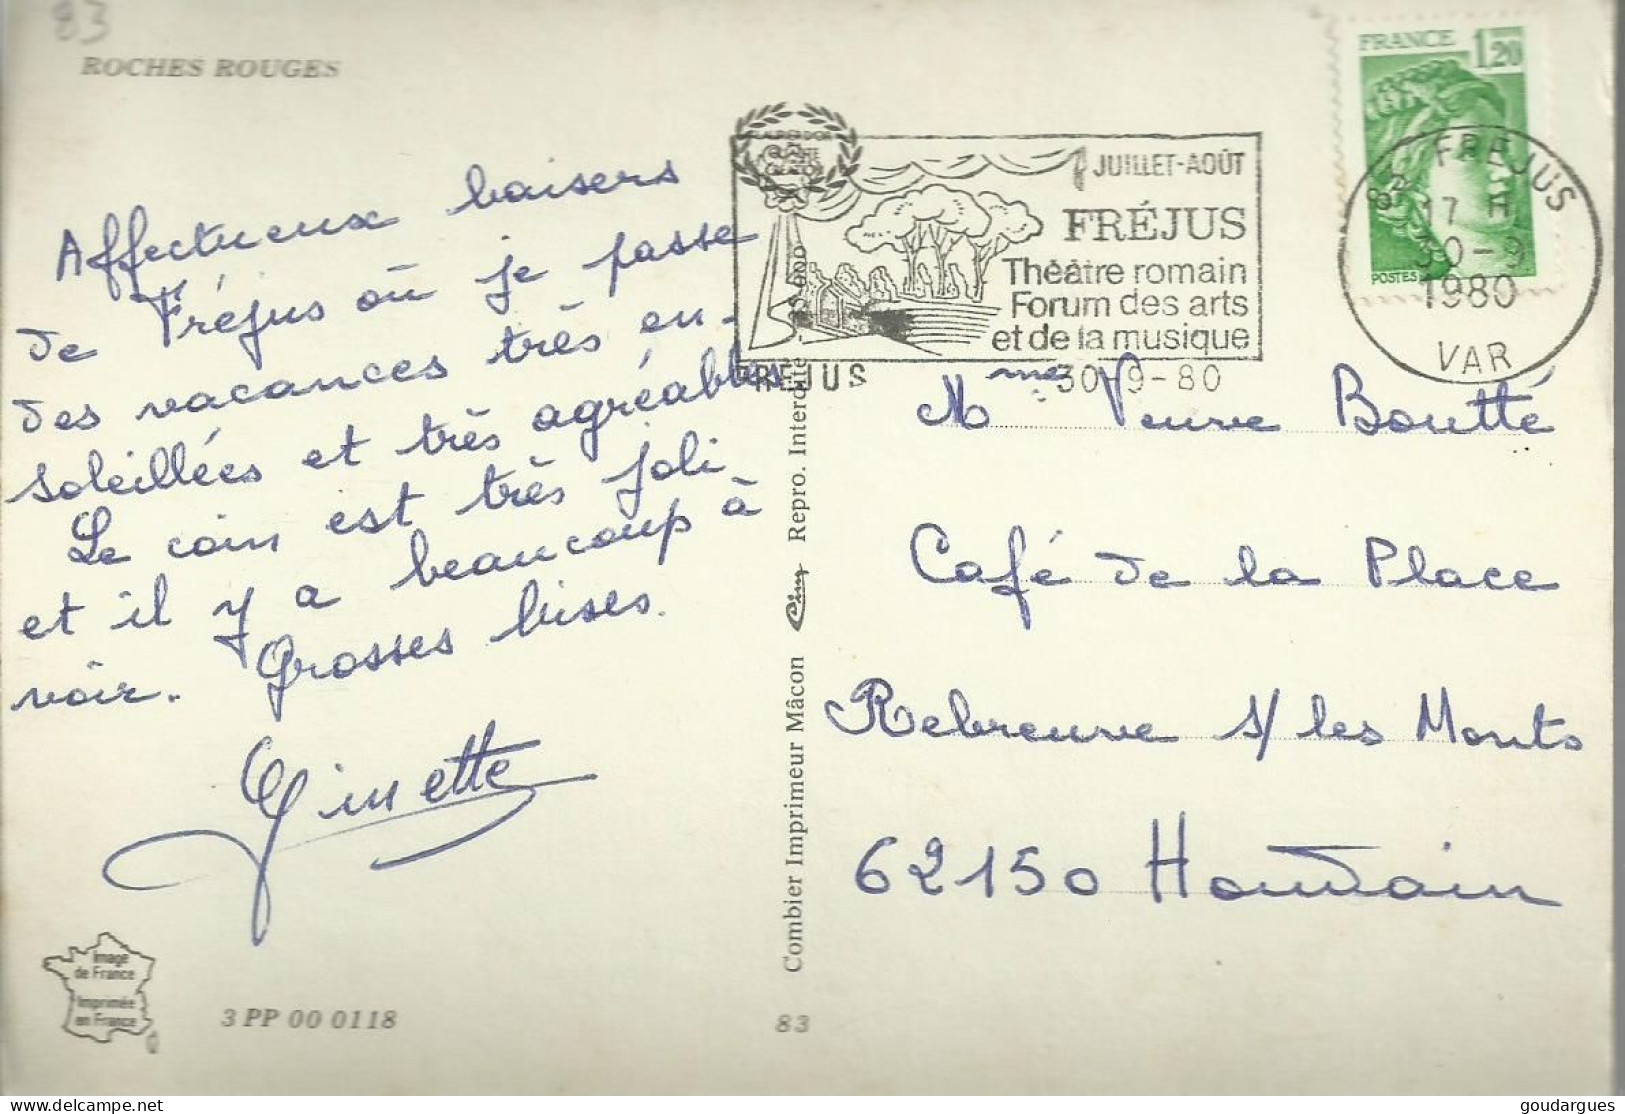 83
ROCHES ROUGES
Affectueux baisers
de Fréjus où je passe
des vacances très en-
soleillées et très agréables
Le coin est très joli
et il y a beaucoup à
voir. Grosses bises.
Ginette
Image
de France
Imprimée
en France
3 PP 00 0118
Combier Imprimeur Mâcon Repro. Interdite
83
JUILLET-AOÛT
FRÉJUS
Théâtre romain
Forum des arts
et de la musique
FREJUS 30-9-80
FRANCE 1,20
POSTES
83 FREJUS
17 H
30-9
1980
VAR
Mme Veuve Boutté
Café de la Place
Rebreuve s/ les Monts
62150 Houdain
goudargues